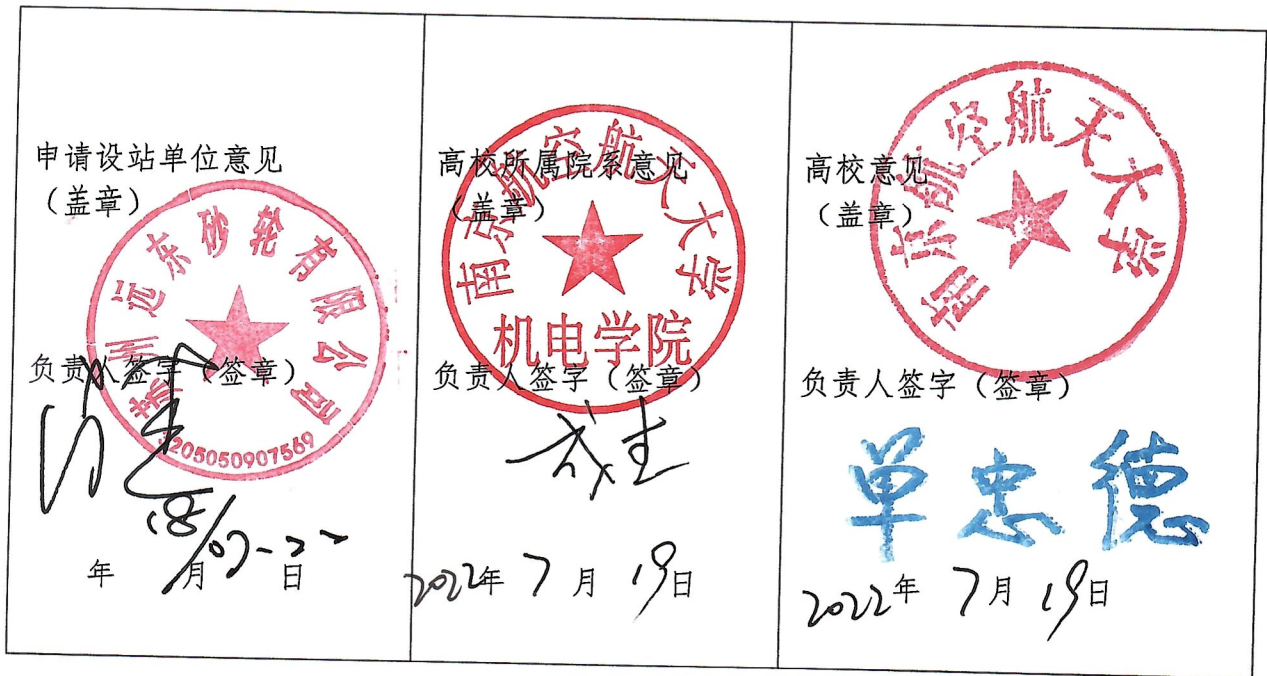 申请设站单位意见
（盖章）
州远东砂轮有限公司
3205050907569
负责人签字（签章）
年 月 日
高校所属院系意见
（盖章）
南京航空航天大学
机电学院
负责人签字（签章）
2022年 7 月 19日
高校意见
（盖章）
南京航空航天大学
负责人签字（签章）
单忠德
2022年 7月 19日